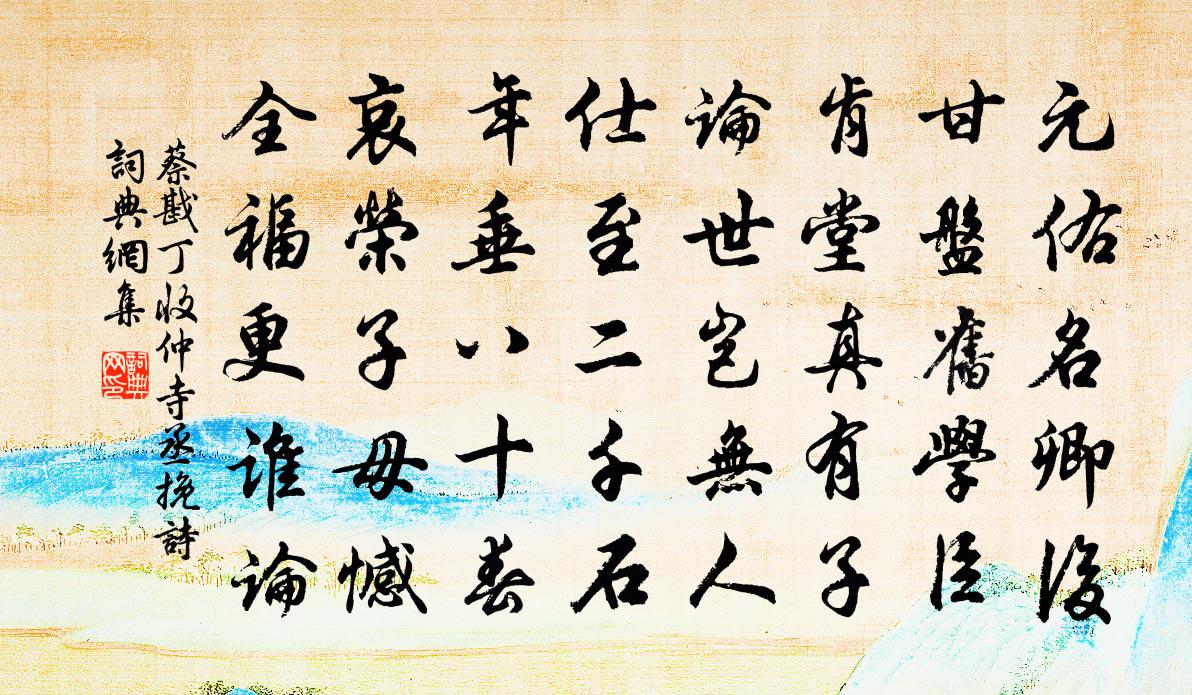 元佑名卿後
甘盤舊學臣
肯堂真有子
論世豈無人
仕至二千石
年垂八十春
哀榮子毋憾
全福更誰論
蔡戡丁收仲寺丞挽詩
詞典網集
詞典网印